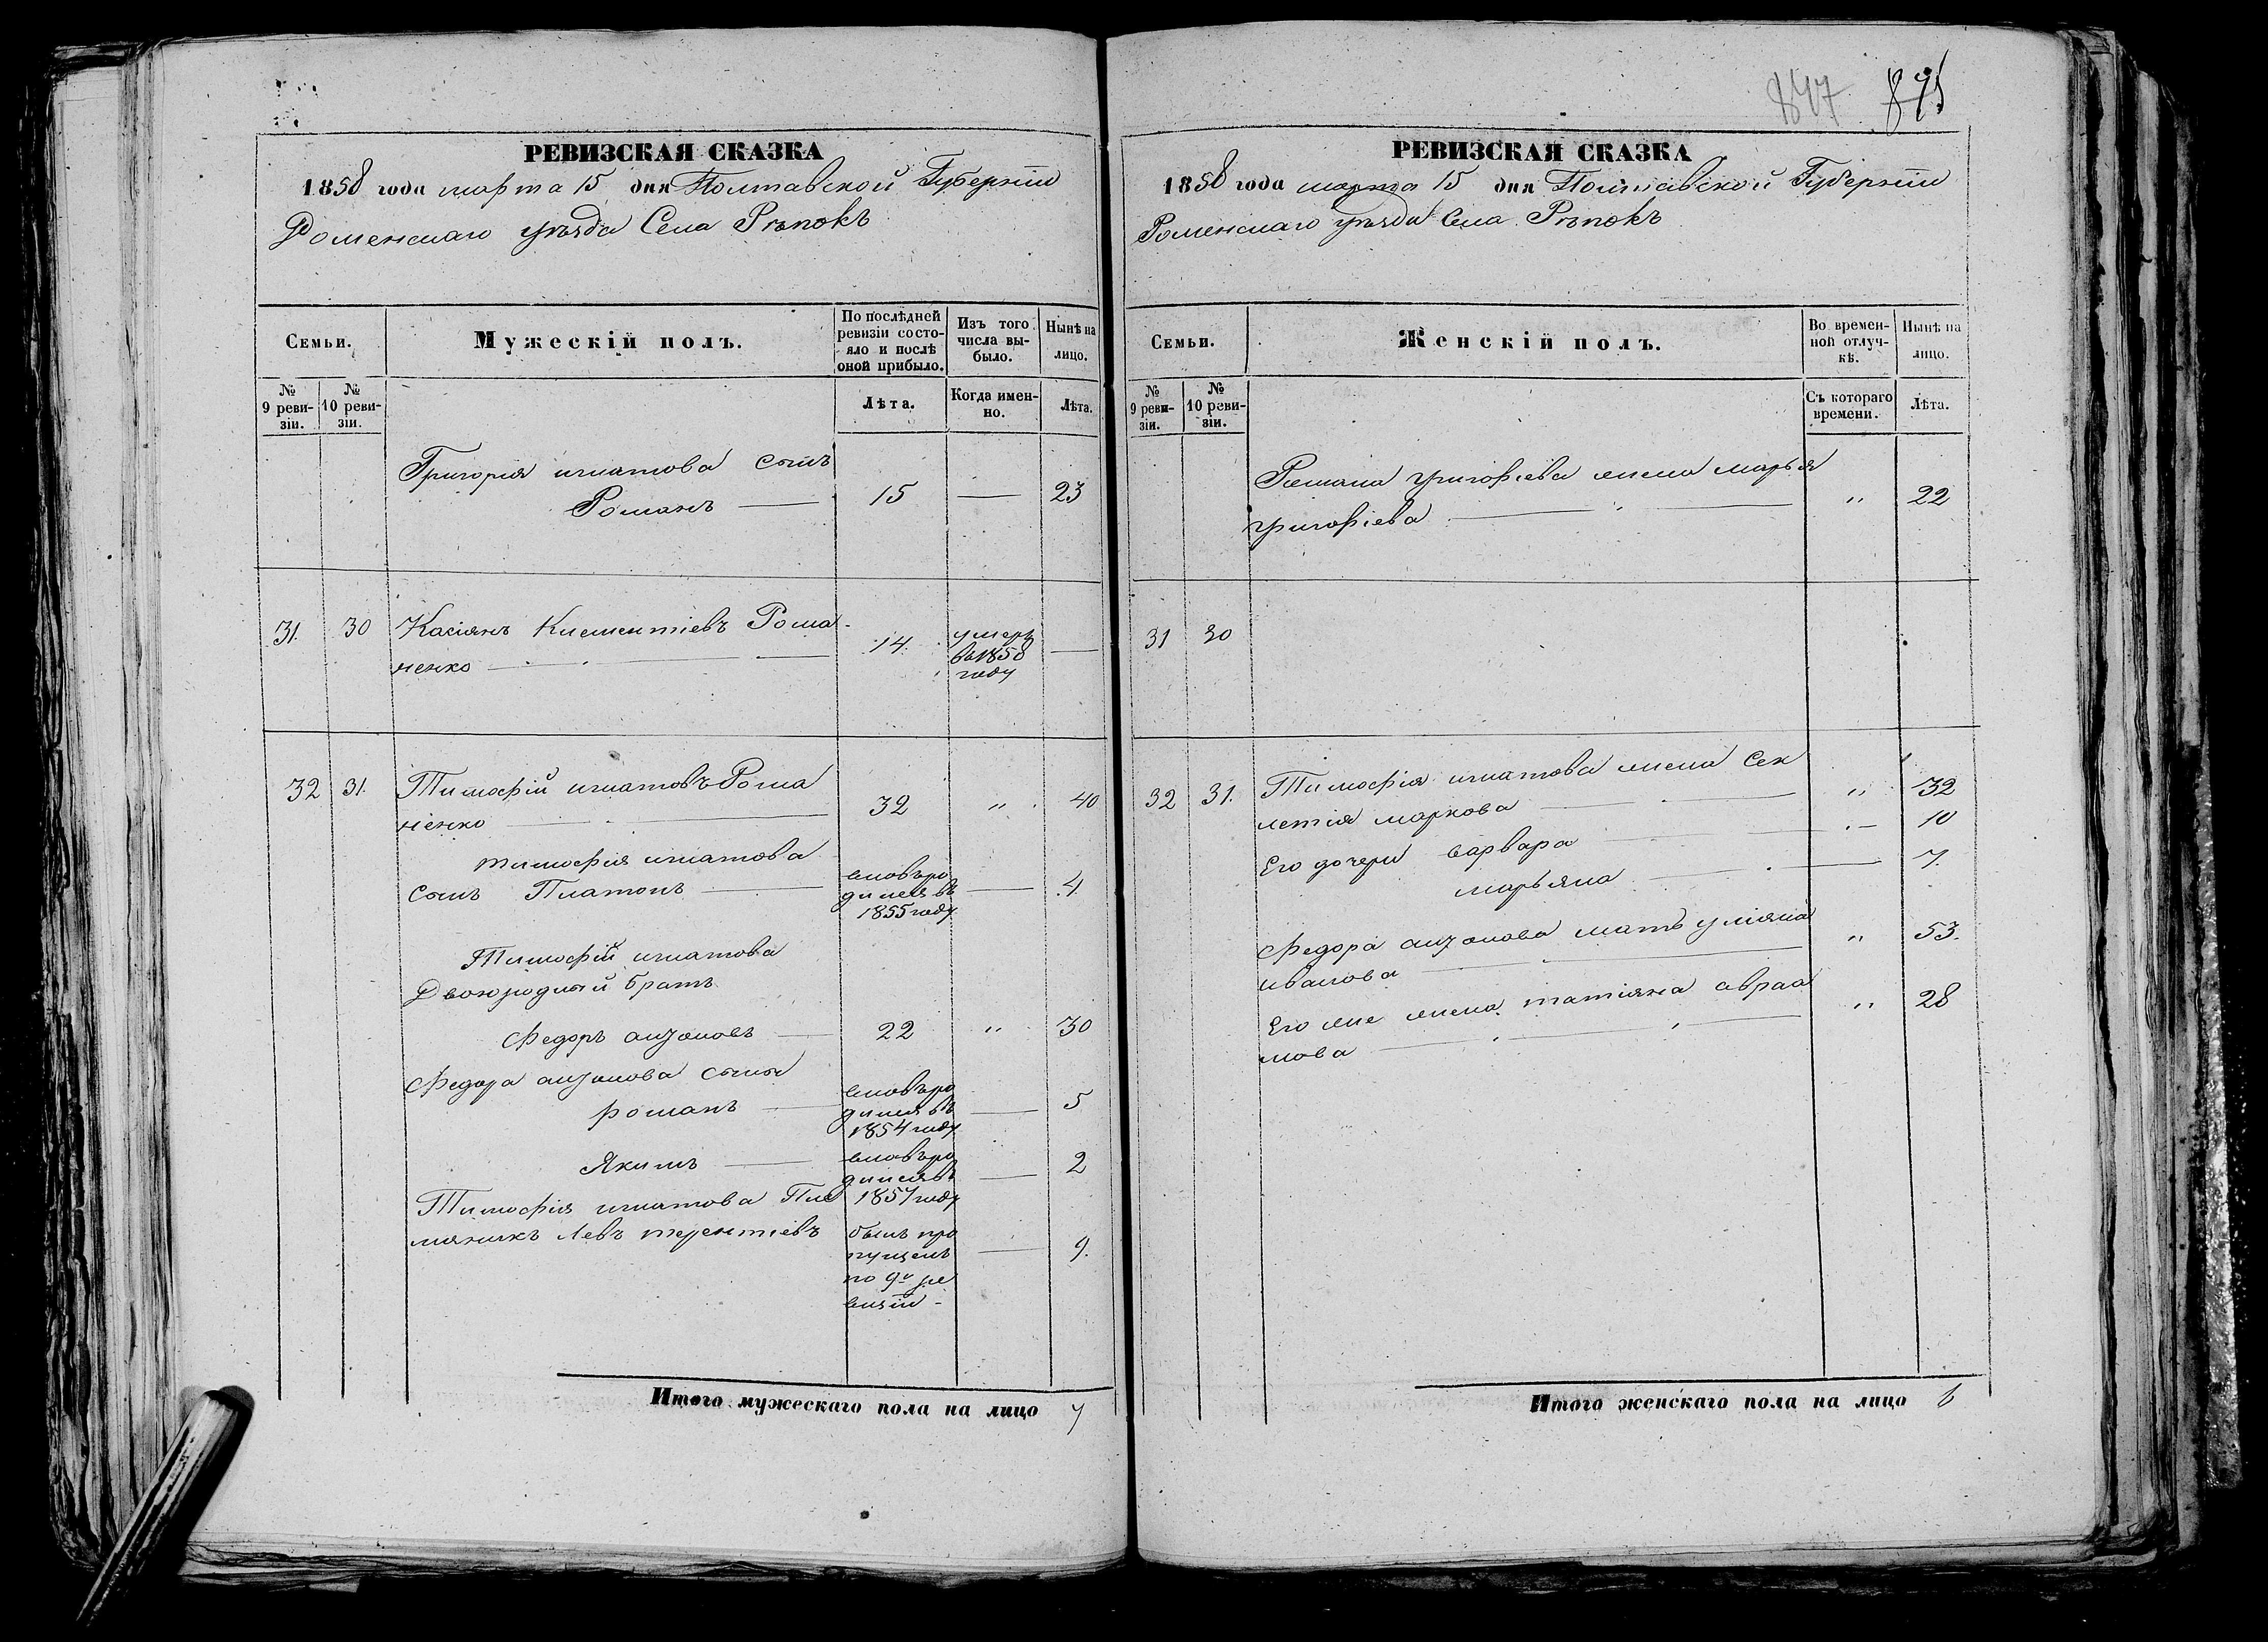 РЕВИЗСКАЯ СКАЗКА
1858 года марта 15 дня Полтавской Губерніи
Роменскаго уѣзда Села Рѣпокъ
Семьи.
Мужескій полъ.
По послѣдней ревизіи состояло и послѣ оной прибыло.
Изъ того числа выбыло.
Нынѣ на лицо.
№ 9 ревизіи.
№ 10 ревизіи.
Лѣта.
Когда именно.
Лѣта.
Григорія игнатова сынъ
Романъ 15 — 23
31. 30 Касіянъ Клементіевъ Рома-
ненко 14. умеръ
въ 1858
году —
32 31. Тимофій игнатовъ Рома
ненко 32 „ 40
тимофия игнатова
сынъ Платонъ вновьро
дился въ
1855 году — 4.
Тимофій игнатова
Двоюродный братъ
Федоръ анзоновъ 22 „ 30
Федора анзонова сыны
романъ вновьро
дился въ
1854 году — 5
Якимъ вновьро
дился въ
1857 году — 2
Тимофия игнатова Пле
мяникъ Левъ терентіевъ былъ про
пущенъ
по 9й ре
визіи - — 9.
Итого мужескаго пола на лицо 7
847 875
РЕВИЗСКАЯ СКАЗКА
1858 года марта 15 дня Полтавской Губерніи
Роменскаго уѣзда Села Рѣпокъ
Семьи.
Женскій полъ.
Во временной отлучкѣ.
Нынѣ на лицо.
№ 9 ревизіи.
№ 10 ревизіи.
Съ котораго времени.
Лѣта.
Романа григоріева жена марья
григоріева „ 22
31 30
32 31. Тимофія игнатова жена Сек
летія маркова „ 32
Его дочери варвара — 10
марьяна — 7.
Федора анзонова мать уліяна
иванова „ 53.
Его же жена татіяна авраа
мова „ 28
Итого женскаго пола на лицо 6